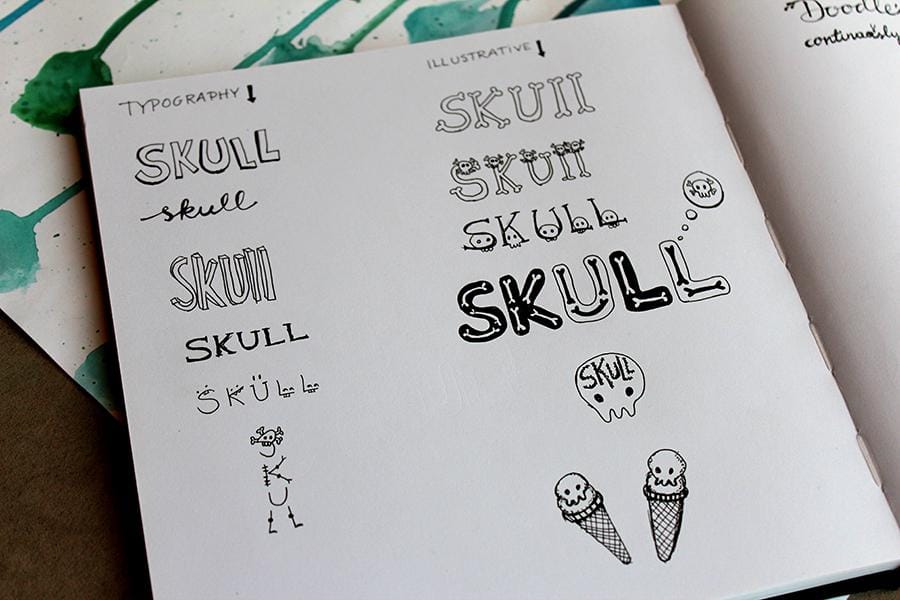 TYPOGRAPHY
SKULL
skull
SKUll
SKULL
SKÜLL
SKULL
ILLUSTRATIVE
SKUll
SKUll
SKULL
SKULL
SKULL
Doodle
continuously